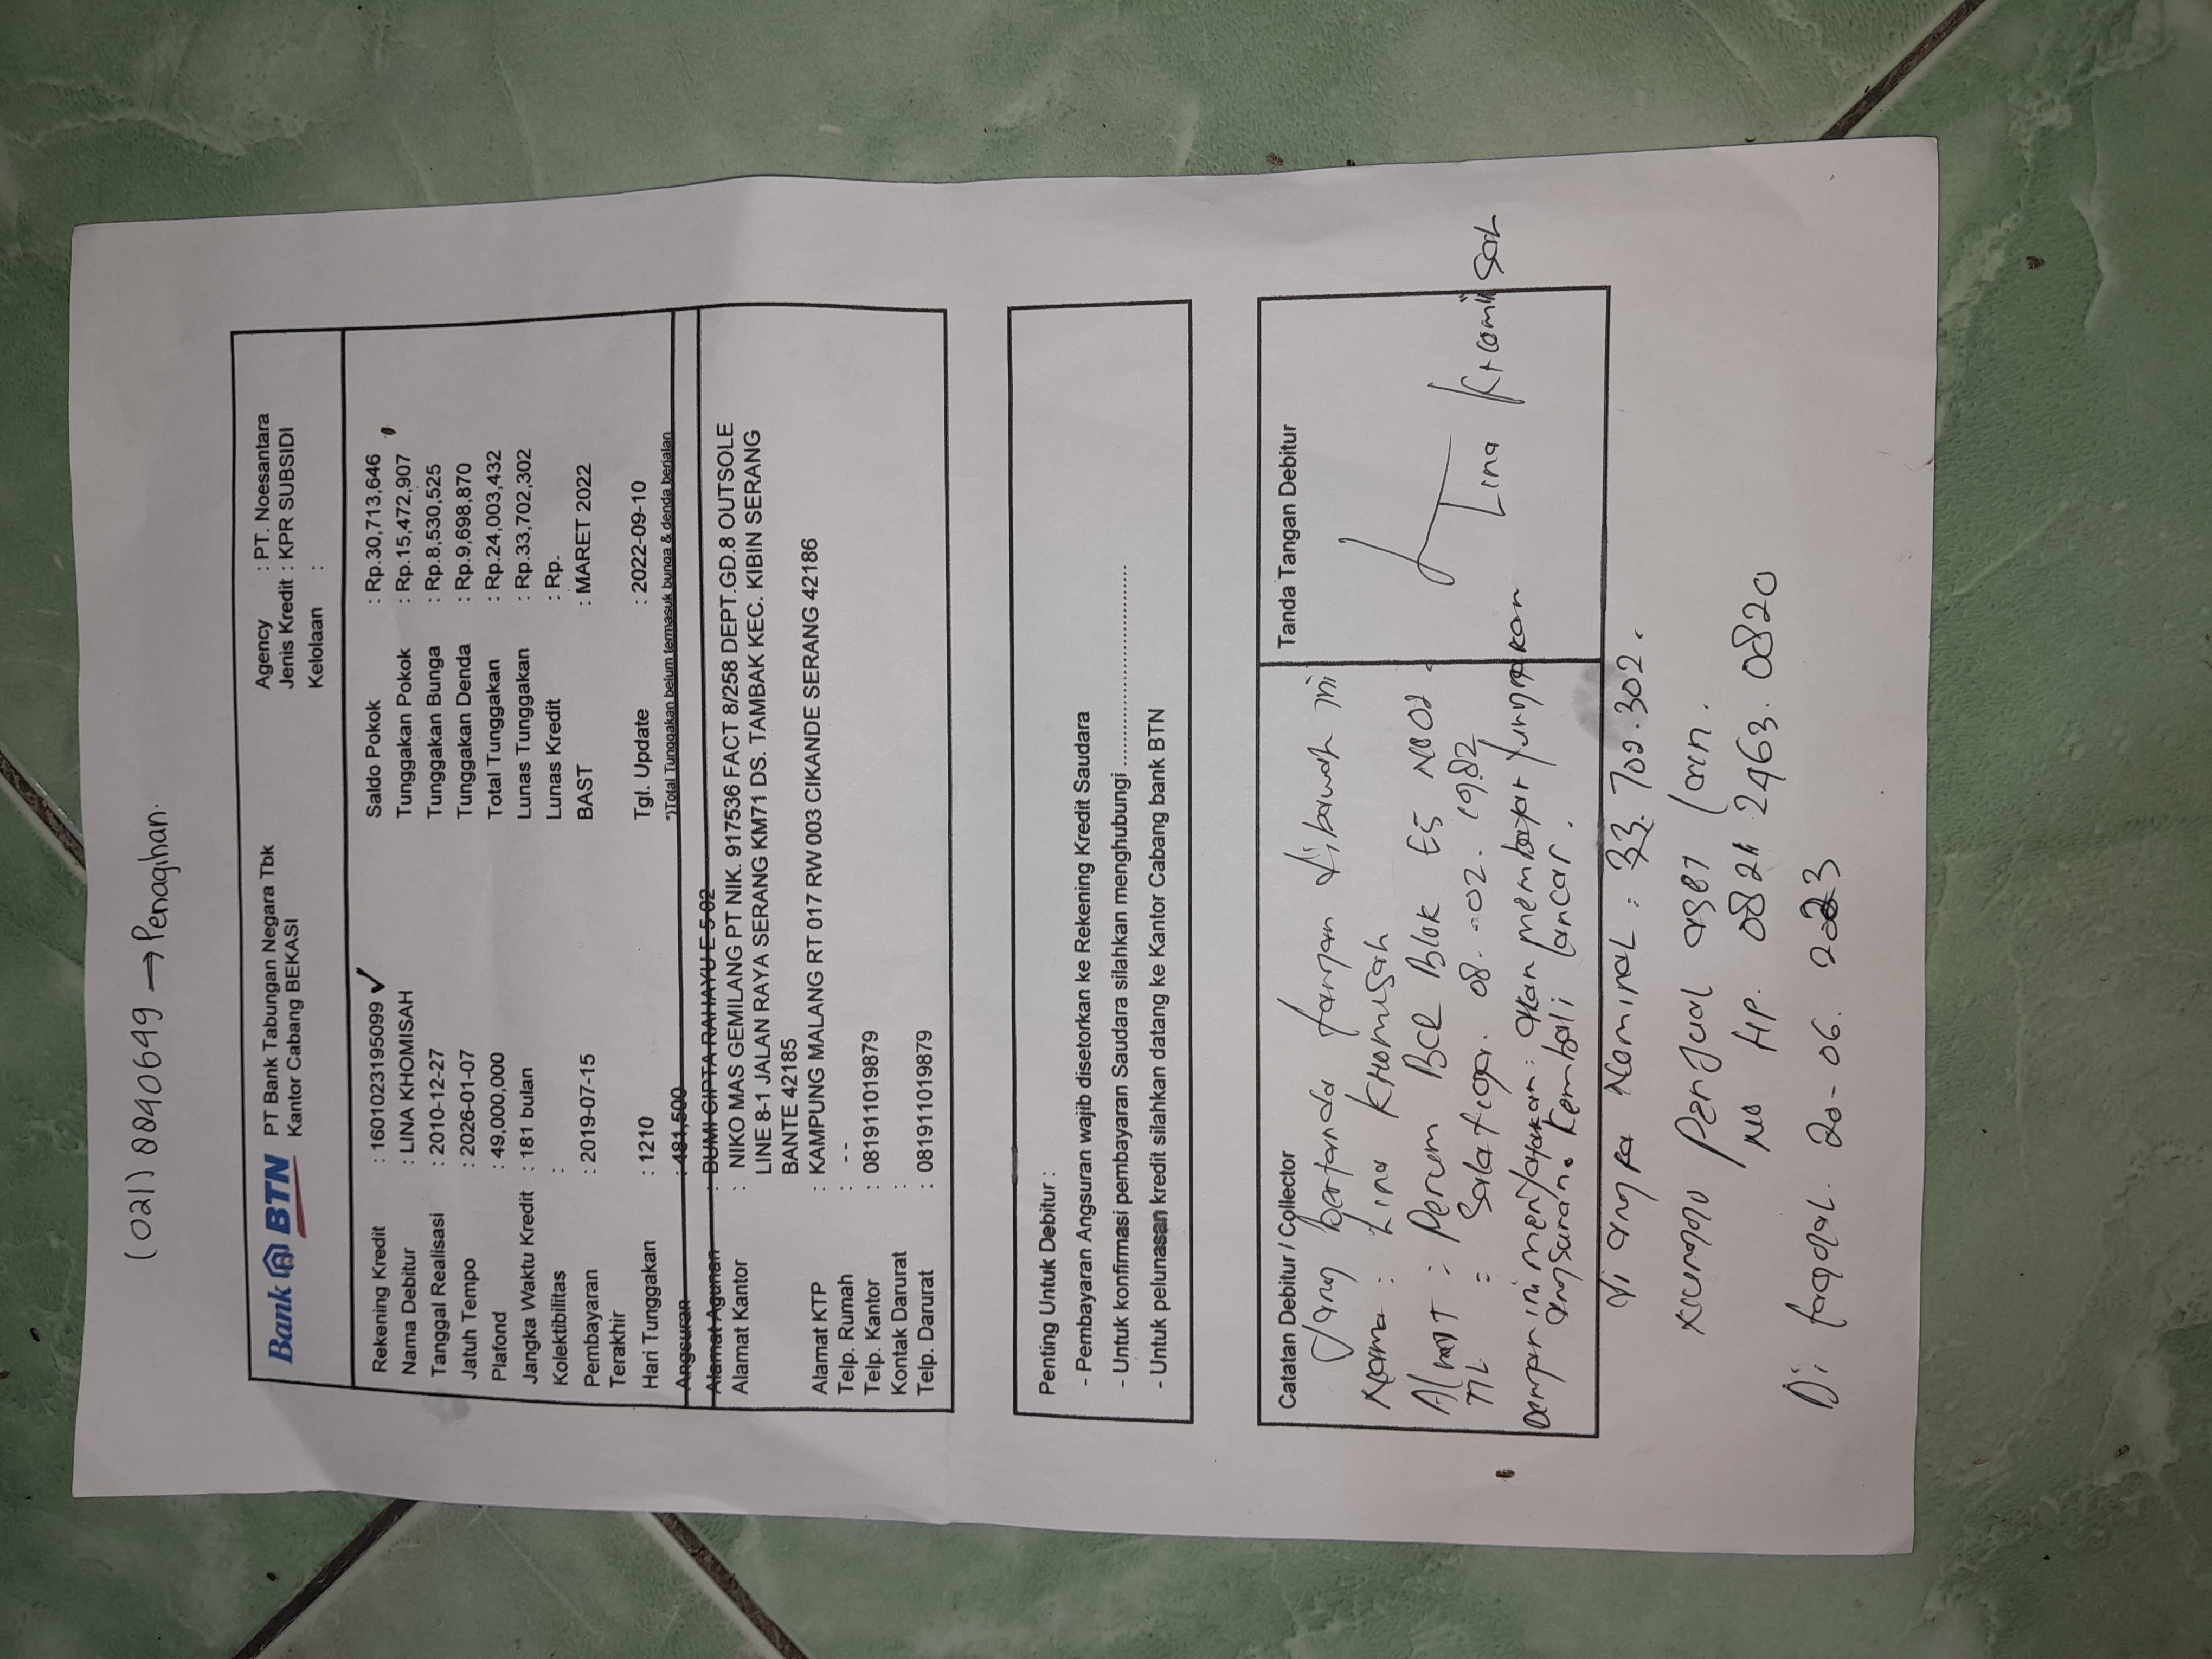 (021) 8840649 → Penagihan.
Bank BTN PT Bank Tabungan Negara Tbk
Kantor Cabang BEKASI
Agency : PT. Noesantara
Jenis Kredit : KPR SUBSIDI
Kelolaan :
Rekening Kredit : 1601023195099 ✓
Nama Debitur : LINA KHOMISAH
Tanggal Realisasi : 2010-12-27
Jatuh Tempo : 2026-01-07
Plafond : 49,000,000
Jangka Waktu Kredit : 181 bulan
Kolektibilitas :
Pembayaran Terakhir : 2019-07-15
Hari Tunggakan : 1210
Angsuran : 481,500
Saldo Pokok : Rp.30,713,646
Tunggakan Pokok : Rp.15,472,907
Tunggakan Bunga : Rp.8,530,525
Tunggakan Denda : Rp.9,698,870
Total Tunggakan : Rp.24,003,432
Lunas Tunggakan : Rp.33,702,302
Lunas Kredit : Rp.
BAST : MARET 2022
Tgl. Update : 2022-09-10
*)Total Tunggakan belum termasuk bunga & denda berjalan
Alamat Agunan : BUMI CIPTA RAHAYU E 5 02
Alamat Kantor : NIKO MAS GEMILANG PT NIK. 917536 FACT 8/258 DEPT.GD.8 OUTSOLE
LINE 8-1 JALAN RAYA SERANG KM71 DS. TAMBAK KEC. KIBIN SERANG
BANTE 42185
Alamat KTP : KAMPUNG MALANG RT 017 RW 003 CIKANDE SERANG 42186
Telp. Rumah : --
Telp. Kantor : 081911019879
Kontak Darurat :
Telp. Darurat : 081911019879
Penting Untuk Debitur :
- Pembayaran Angsuran wajib disetorkan ke Rekening Kredit Saudara
- Untuk konfirmasi pembayaran Saudara silahkan menghubungi ..............................
- Untuk pelunasan kredit silahkan datang ke Kantor Cabang bank BTN
Catatan Debitur / Collector
Yang bertanda tangan dibawah ini
Nama : Lina Khomisah
Alamat : Perum BCR Blok E5 No 02.
TTL : Salatiga. 08-02.1982
Dengan ini menyatakan : akan membayar tunggakan
angsuran. Kembali lancar.
Tanda Tangan Debitur
Lina Khomisah
di angka Nominal : 33.702.302.
Penjual aset lain.
No HP. 0821 2463.0820
Di tanggal. 20-06.2023